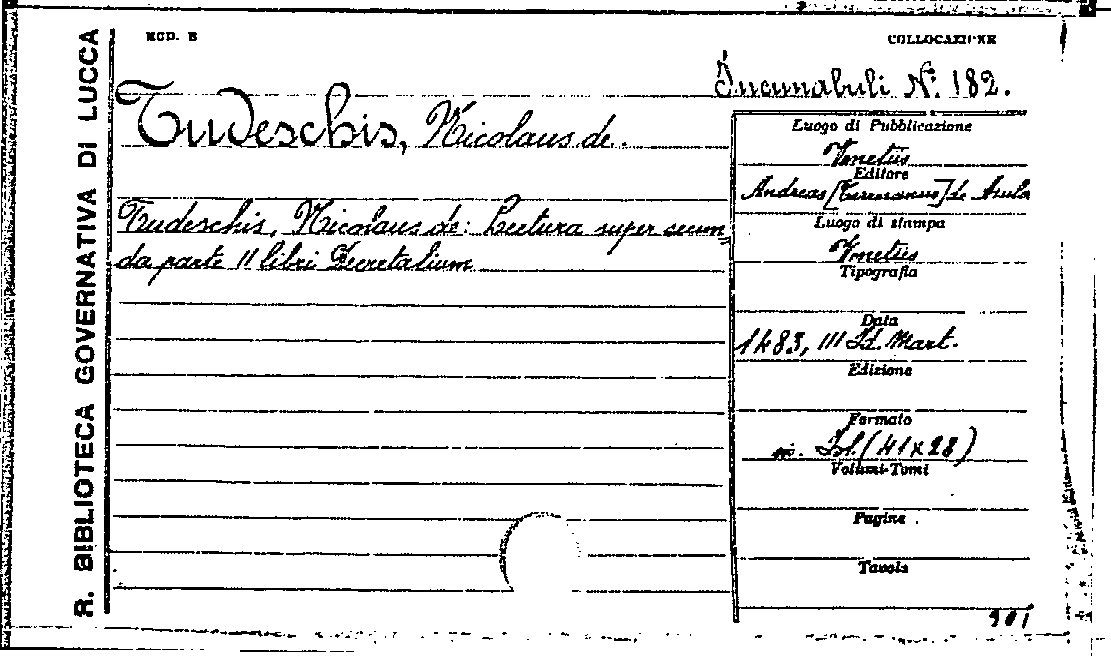 R. BIBLIOTECA GOVERNATIVA DI LUCCA
MOD. B
COLLOCAZIONE
Incunabuli N.° 182.
Tudeschis, Nicolaus de.
Tudeschis, Nicolaus de: Lectura super secun
da parte II libri Decretalium
Luogo di Pubblicazione
Venetiis
Editore
Andreas [Torresanus] de Asula
Luogo di stampa
Venetiis
Tipografia
Data
1483, III Id. Mart.
Edizione
Formato
in fol. (41x28)
Volumi-Tomi
Pagine
Tavole